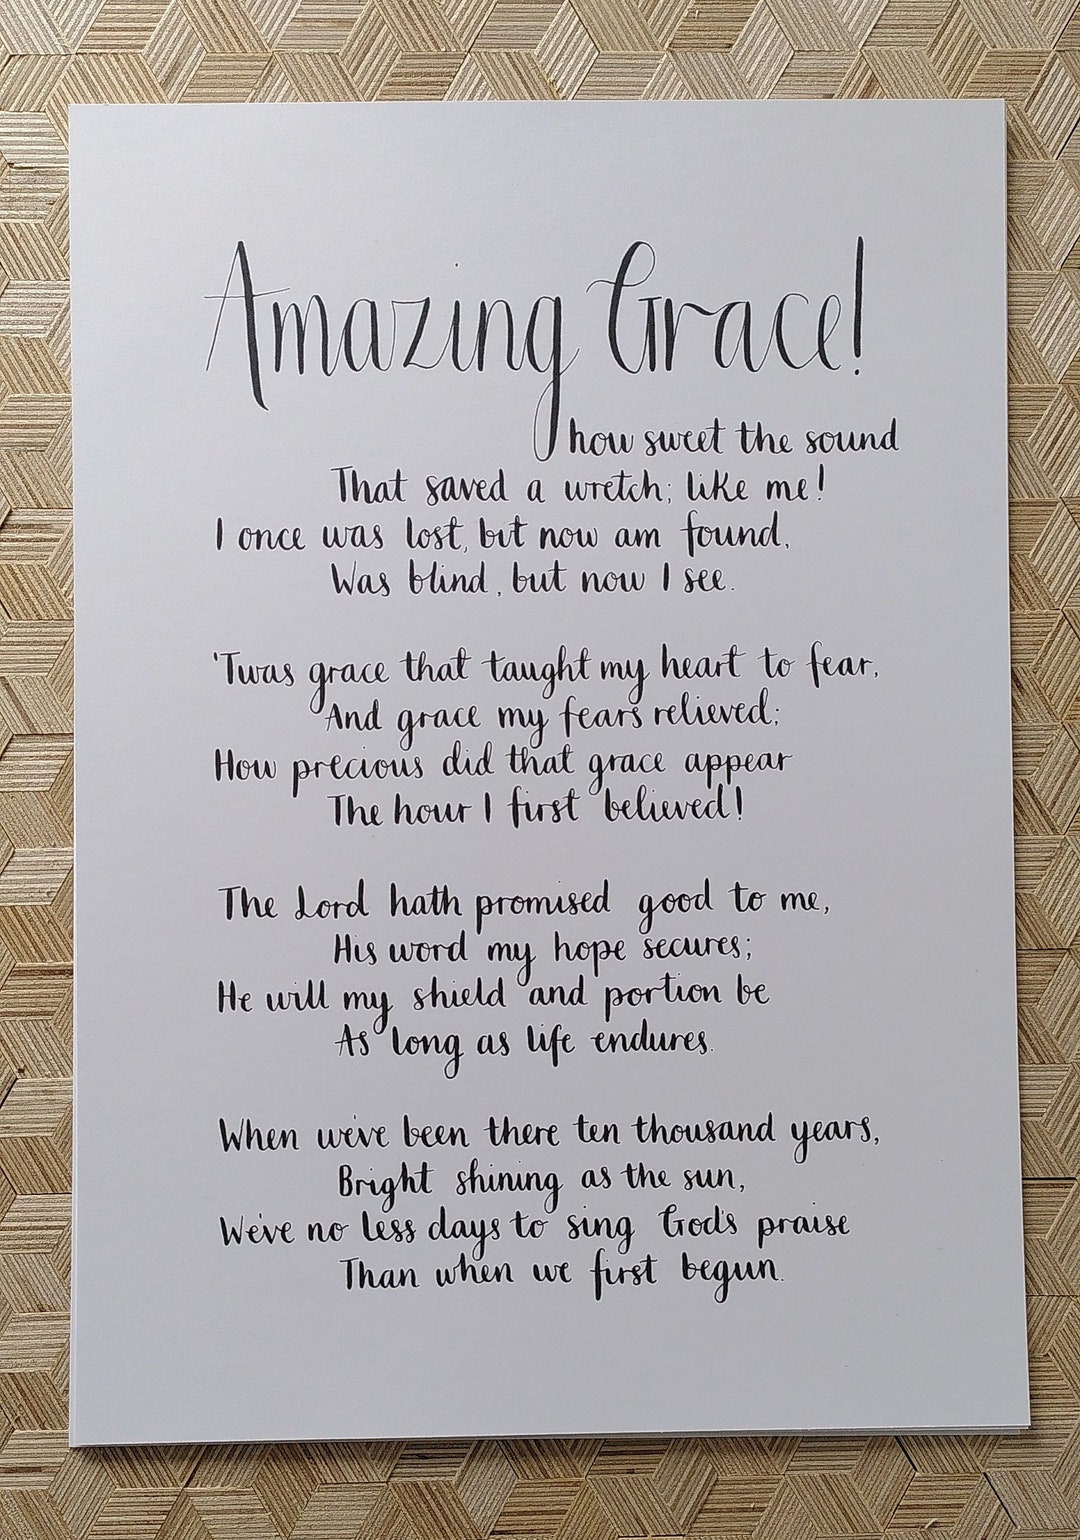 Amazing Grace!
how sweet the sound
That saved a wretch; like me!
I once was lost, but now am found,
Was blind, but now I see.
'Twas grace that taught my heart to fear,
And grace my fears relieved;
How precious did that grace appear
The hour I first believed!
The Lord hath promised good to me,
His word my hope secures;
He will my shield and portion be
As long as life endures.
When we've been there ten thousand years,
Bright shining as the sun,
We've no less days to sing God's praise
Than when we first begun.